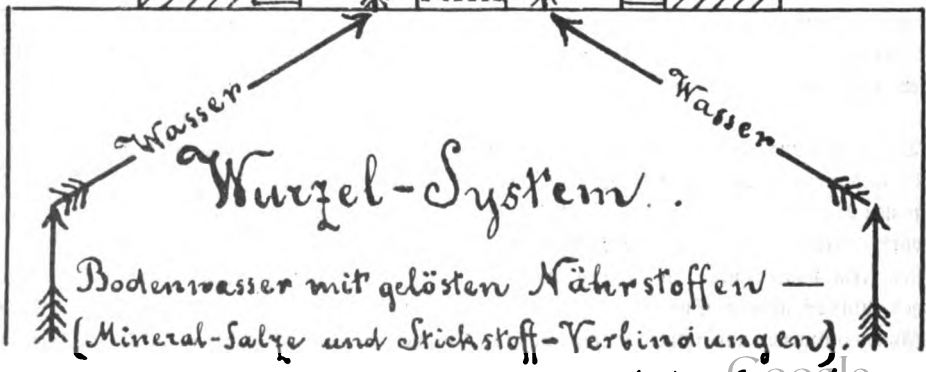 Wasser
Wasser
Wurzel-System.
Bodenwasser mit gelösten Nährstoffen —
(Mineral-Salze und Stickstoff-Verbindungen).
Google